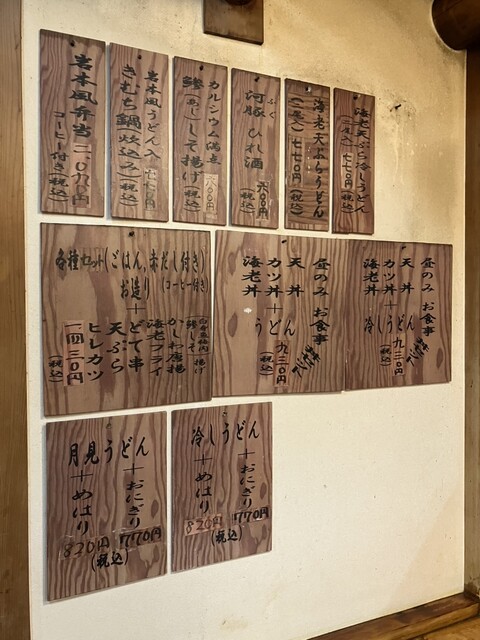 海老天ぷら冷しうどん
(二尾入) 七七〇円(税込)
海老天ぷらうどん
(二尾入) 七七〇円(税込)
河豚ひれ酒
ふぐ
六〇〇円(税込)
カルシウム満点
鯵(あじ)しそ揚げ
六〇〇円(税込)
岩本風うどん入
きむち鍋(炊込み)
七七〇円(税込)
岩本風弁当
二、〇九〇円
コーヒー付き(税込)
昼のみお食事
天丼
カツ丼
海老丼
+
冷しうどん
九三〇円
(税込)
昼のみお食事
天丼
カツ丼
海老丼
+
うどん
九三〇円
(税込)
各種セット(ごはん、赤だし付き)
(コーヒー付き)
お造り
+
鯵しそ揚げ
かしわ唐揚
海老フライ
どて串
天ぷら
ヒレカツ
(税込)
冷しうどん
+おにぎり 770円
+めはり 820円
(税込)
月見うどん
+おにぎり 770円
+めはり 820円
(税込)